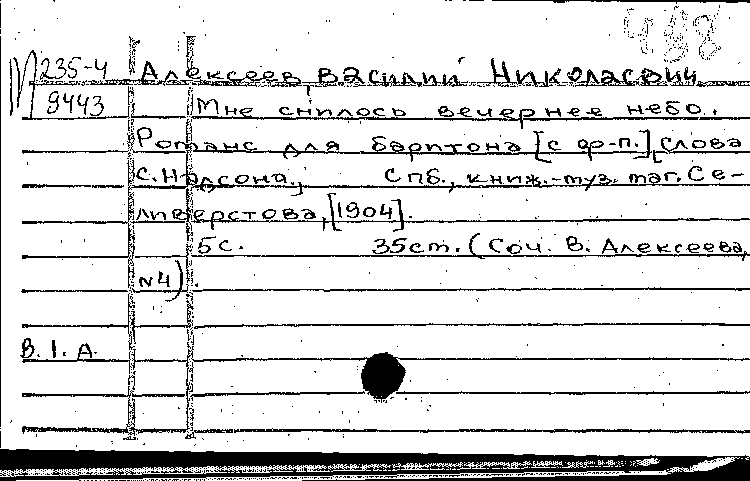 498
М 235-4 Алексеев, Василий Николаевич
9443 Мне снилось вечернее небо.
Романс для баритона [с ф-п.], слова
С. Надсона. Спб., книж.-муз. маг. Се-
ливерстова, [1904].
5 с. 35 см. (Соч. В. Алексеева,
№4).
В. I. А.